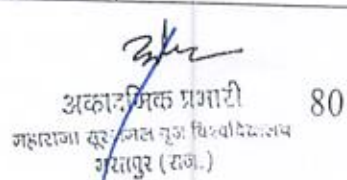 अकादमिक प्रभारी
80
महाराजा सूरजमल बृज विश्वविद्यालय
भरतपुर (राज.)